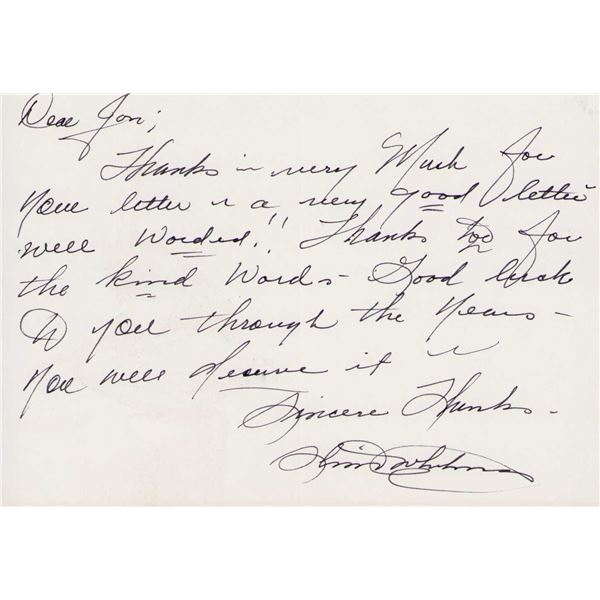 Dear Jon;
Thanks very Much for
your letter a very good letter
well Worded!! Thanks too for
the kind Words - Good luck
to you through the Years -
You well deserve it
Sincere Thanks -